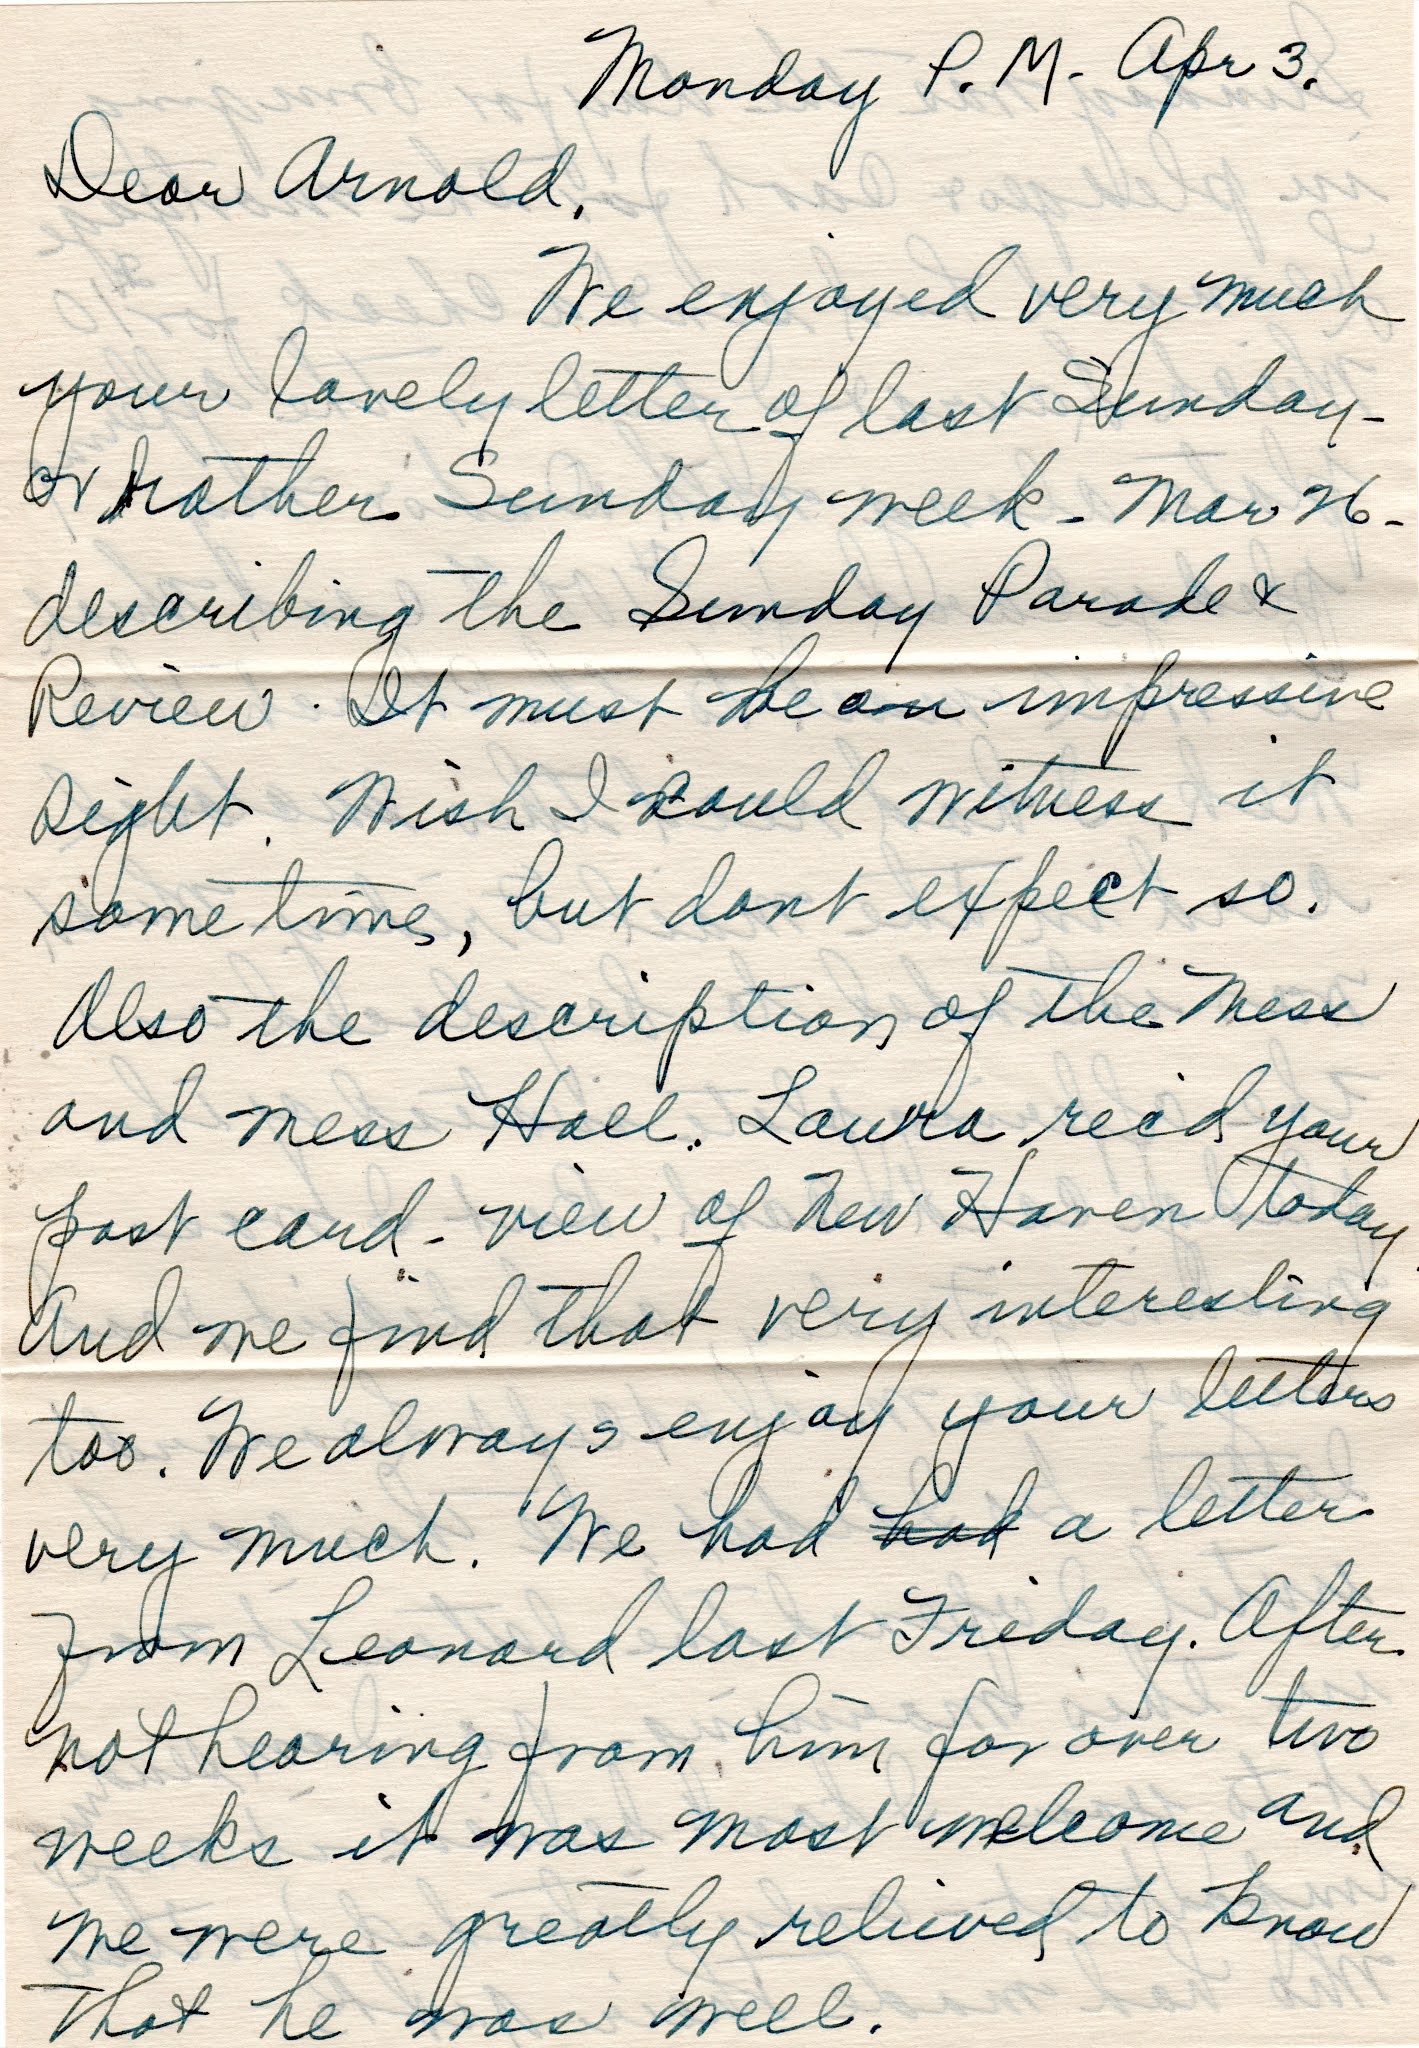 Monday P.M. Apr 3.
Dear Arnold,
We enjoyed very much
your lovely letter of last Sunday-
or rather Sunday week - Mar 26 -
describing the Sunday Parade &
Review. It must be an impressive
sight. Wish I could witness it
sometime, but dont expect so.
Also the description of the Mess
and mess Hall. Laura recd your
post card - view of New Haven today.
And we find that very interesting
too. We always enjoy your letters
very much. We had had a letter
from Leonard last Friday. After
not hearing from him for over two
weeks it was most welcome and
we were greatly relieved to know
that he was well.